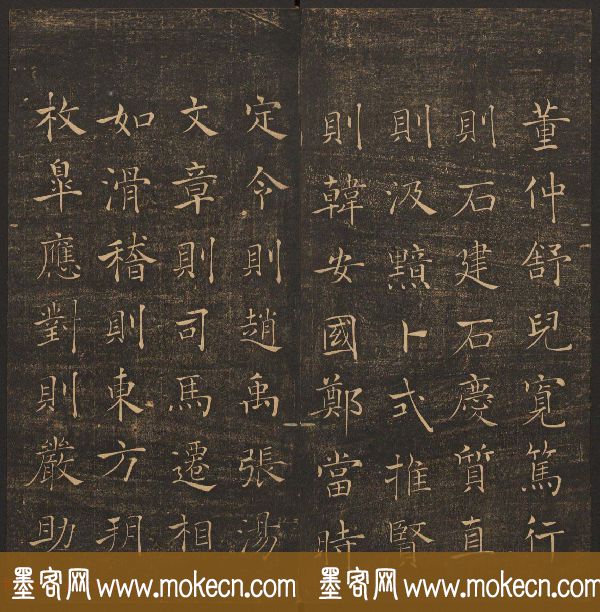 董仲舒兒寬篤行
則石建石慶質直
則汲黯卜式推賢
則韓安國鄭當時
定令則趙禹張湯
文章則司馬遷相
如滑稽則東方朔
枚皐應對則嚴助
墨客网 www.mokecn.com
墨客网 www.mokecn.com